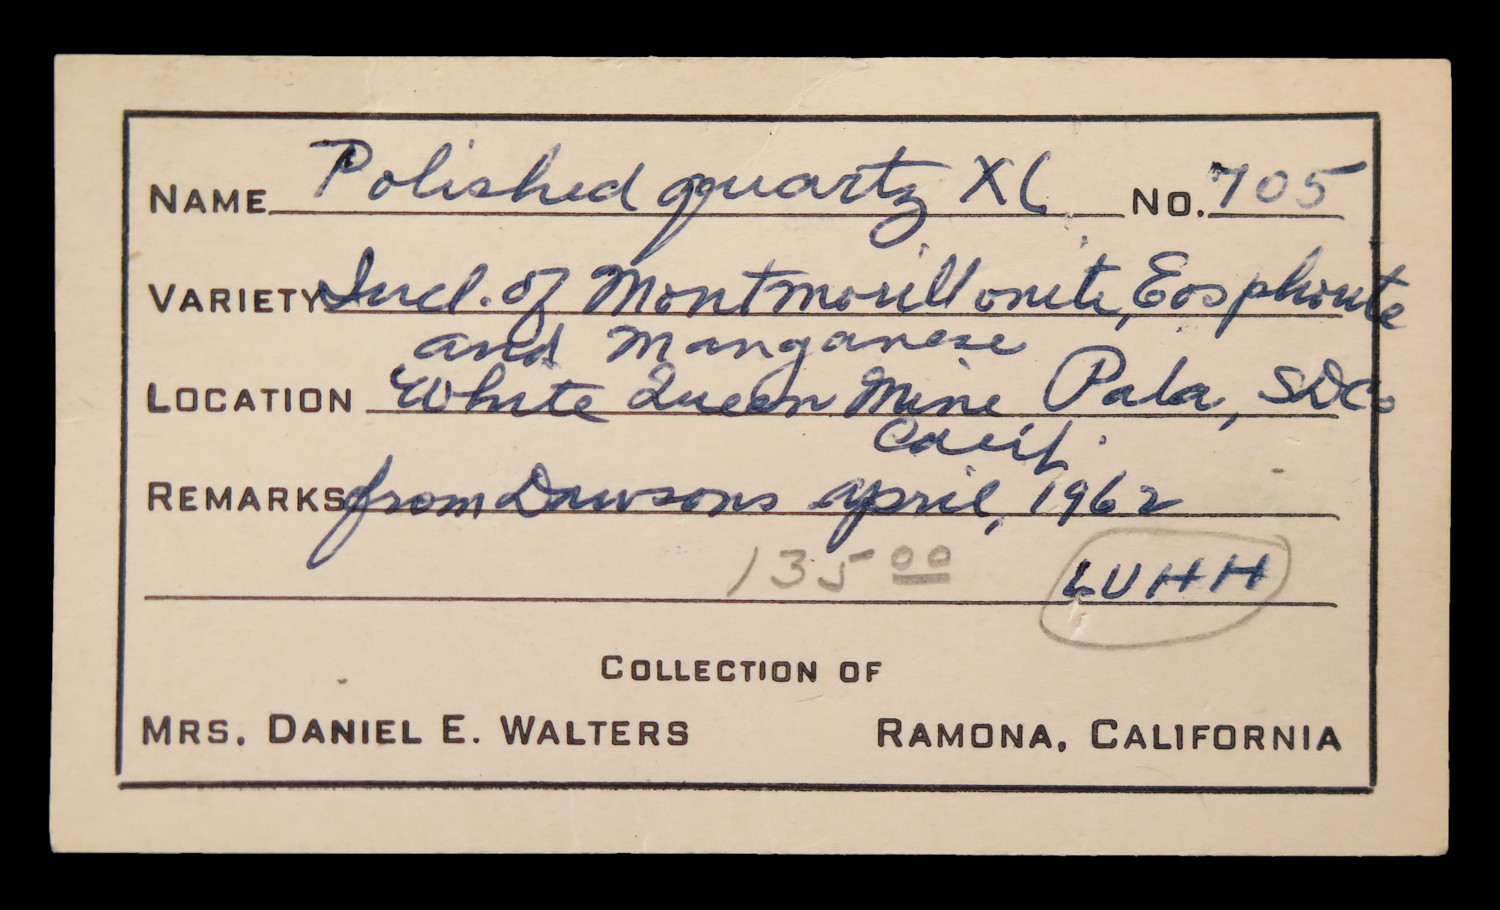 NAME Polished quartz XL NO. 705
VARIETY Incl. of Montmorillonite, Eosphorite
and Manganese
LOCATION White Queen Mine Pala, SDCo
Calif.
REMARKS from Dawsons april, 1962
135 00 LUHH
COLLECTION OF
MRS. DANIEL E. WALTERS RAMONA, CALIFORNIA